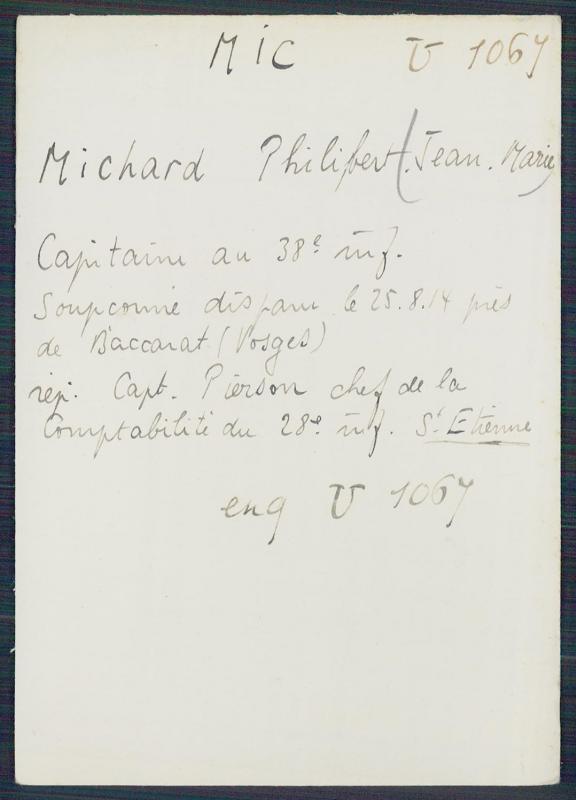 MIC U 1067
Michard Philibert (Jean. Marie)
Capitaine au 38e inf.
Soupconné disparu le 25.8.14 près
de Baccarat (Vosges)
rép. Capt. Pierson chef de la
Comptabilité du 28e inf. St Etienne
enq U 1067